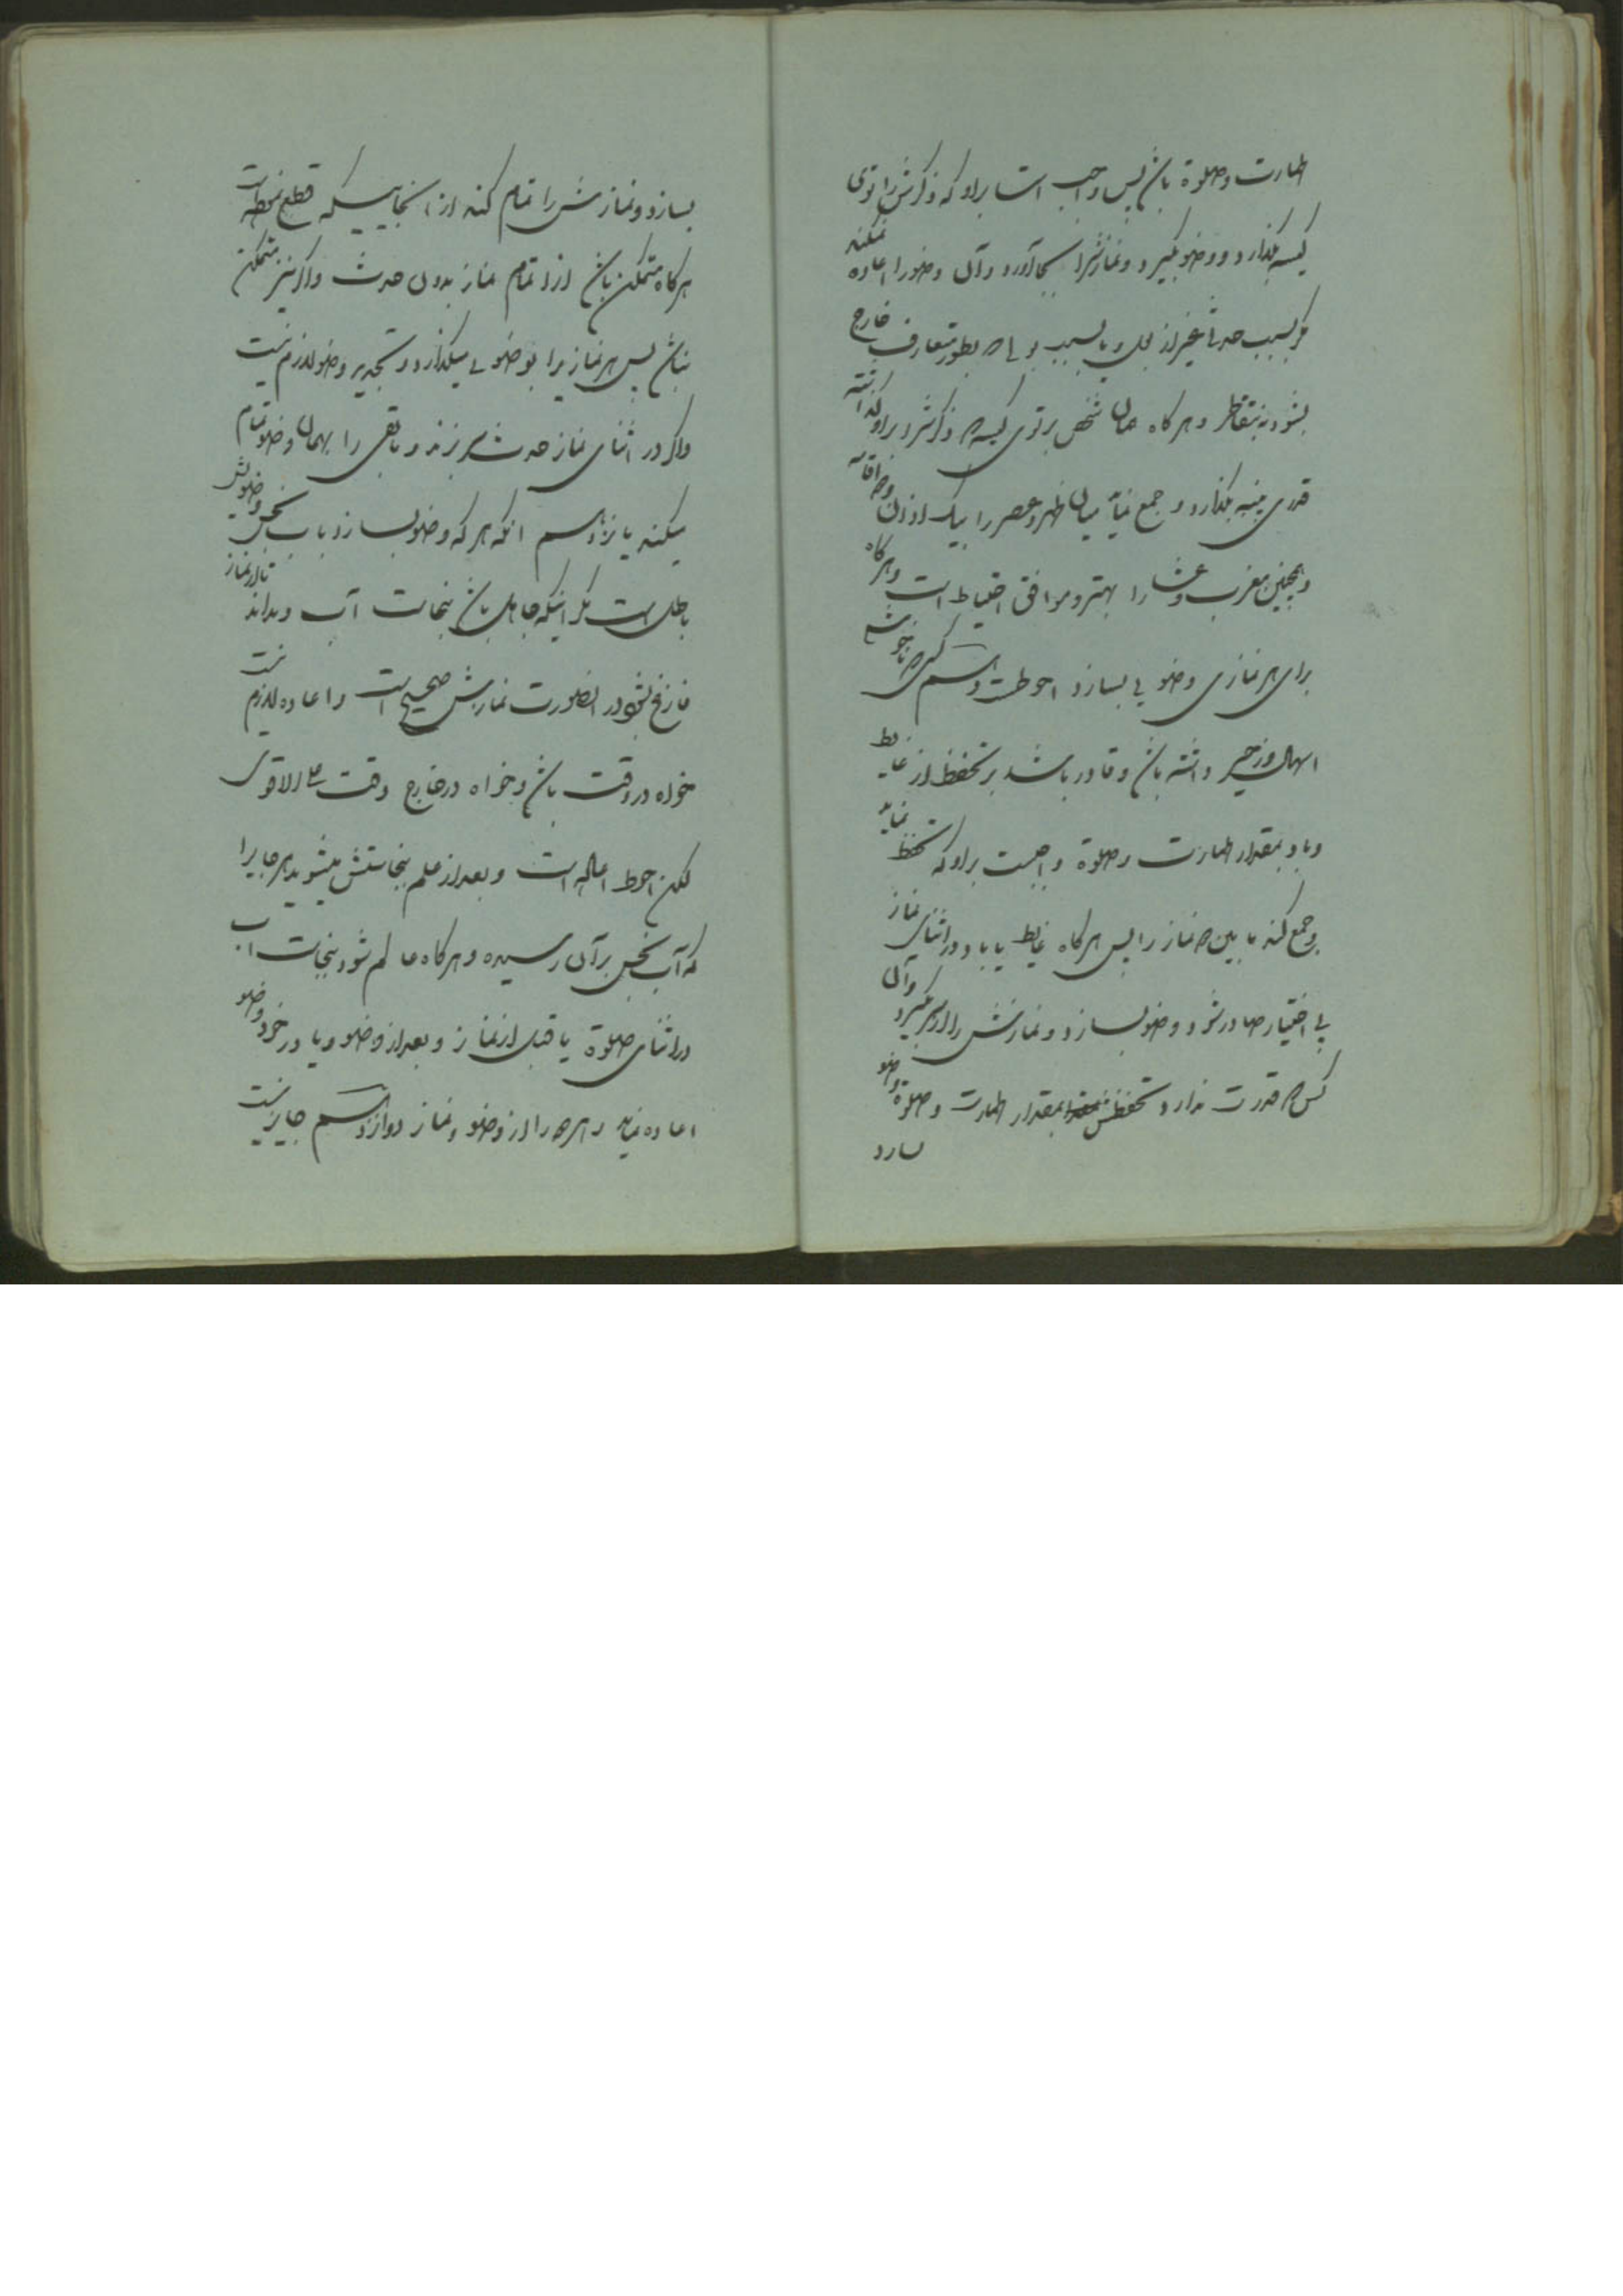 طهارت وصلوة باشد پس واجب است براو که ذکرش را توی
کیسه بگذارد و وضو بگیرد و نمازش را بجا آورد و آن وضو را اعاده نمیکند
مگر بسبب حدثی غیر از بول و یا بسبب بولی که بطور متعارف خارج
بشود نه بتقاطر و هرگاه همان شخص بر توی کیسه که ذکرش در او گذاشته
قدری پنبه بگذارد و جمع نماید میان ظهر و عصر را بیک اذان و دو اقامه
و همچنین مغرب و عشا را بهتر و موافق احتیاط است و هرگاه
برای هر نمازی وضویی بسازد احوط است کسی که ناخوشی
اسهال و زحیر داشته باشد و قادر باشد بر تحفظ از غایط
و باد بمقدار طهارت و صلوة واجبست براو که تحفظ نماید
و جمع کند ما بین نماز را پس هرگاه غایط یا باد در اثنای نماز
بی اختیار صادر شود وضو بسازد و نمازش را از سر گیرد و آن
کس که قدرت ندارد تحفظش بمقدار طهارت و صلوة وضو
بسازد
بسازد و نمازش را تمام کند از آنجاییکه قطع نموده است
هرگاه متمکن باشد از اتمام نماز بدون حدث و اگر نیز متمکن
نباشد پس هر نماز را بوضویی میگذارد و تجدید وضو لازم نیست
و اگر در اثنای نماز حدث سر بزند و باقی را بهمان وضو تمام
میکند یازدهم آنکه هر که وضو بسازد با آب نجس وضویش
باطل است مگر اینکه جاهل باشد بنجاست آب و نداند تا از نماز
فارغ بشود در اینصورت نمازش صحیح است و اعاده لازم نیست
خواه در وقت باشد و خواه در خارج وقت علی الاقوی
لکن احوط اعاده است و بعد از علم بنجاستش میشوید هر جایرا
که آب نجس بر آن رسیده و هرگاه عالم شود بنجاست آب
در اثنای صلوة یا قبل از نماز و بعد از وضو و یا در خود وضو
اعاده نماید هر دو را از وضو و نماز دوازدهم جایز نیست